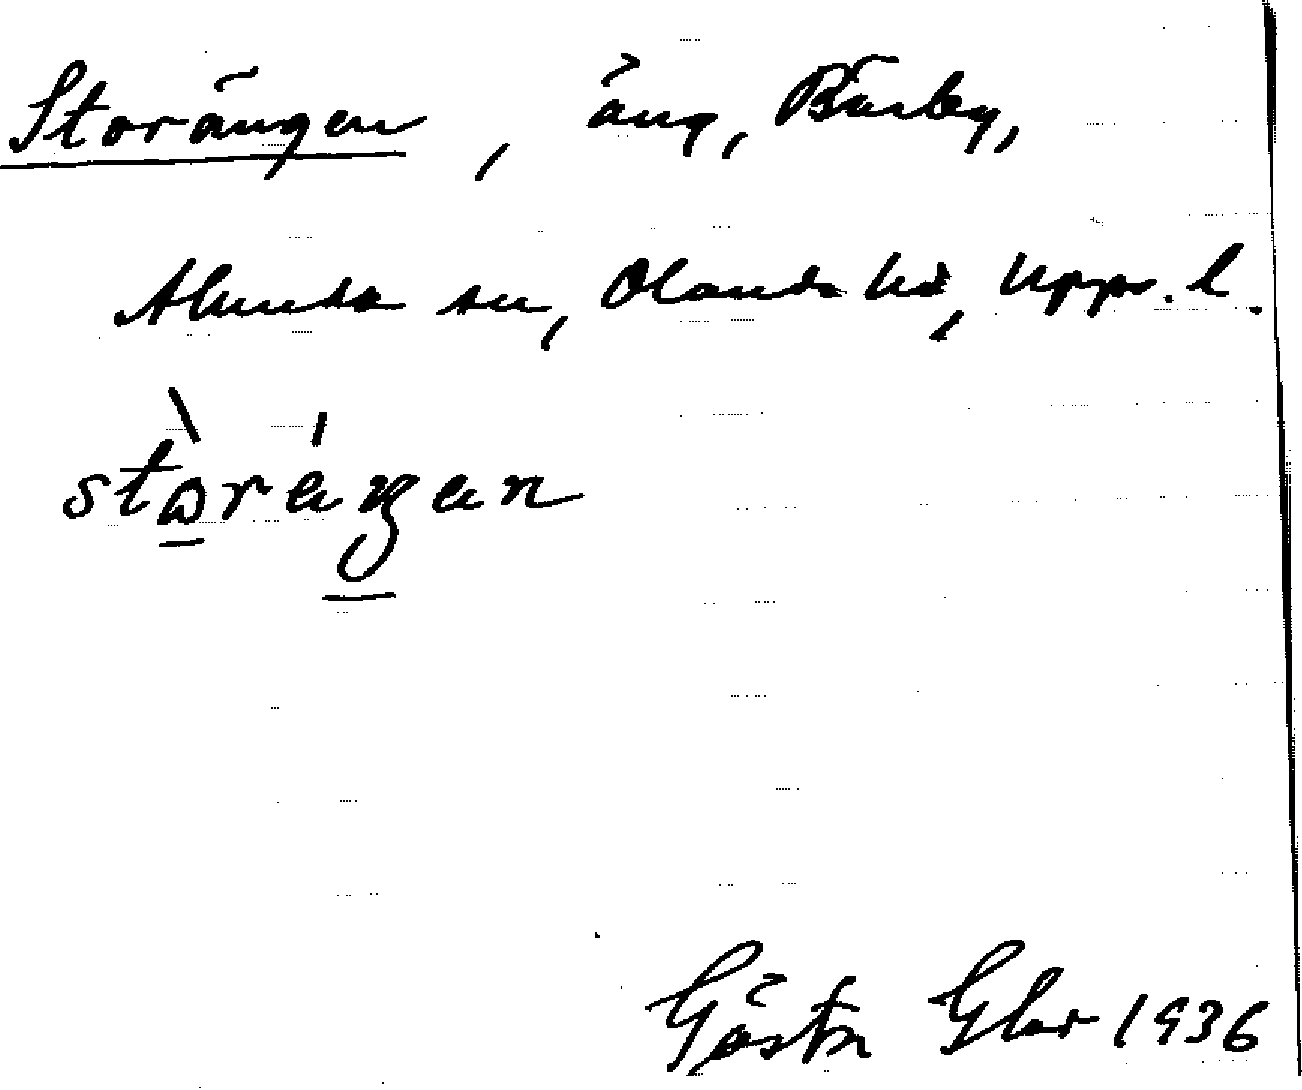 Storängen, äng, Bärby,
Alunda sn, Olands hd, Upps. l.
stòráŋan
Gösta Glor 1936